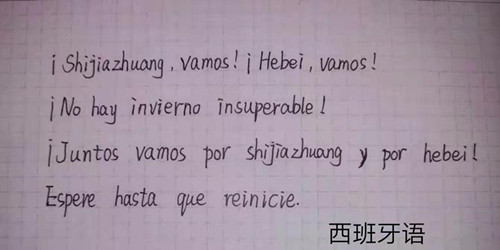 ¡Shijiazhuang, vamos! ¡Hebei, vamos!
¡No hay invierno insuperable!
¡Juntos vamos por shijiazhuang y por hebei!
Espere hasta que reinicie.
西班牙语